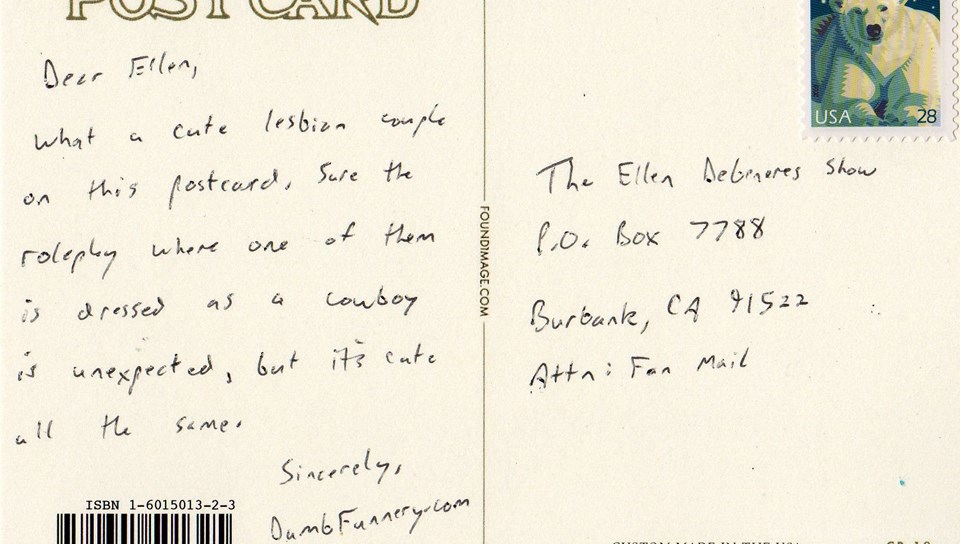 POST CARD
Dear Ellen,
What a cute lesbian couple
on this postcard. Sure the
roleplay where one of them
is dressed as a cowboy
is unexpected, but it's cute
all the same.
Sincerely,
DumbFunnery.com
ISBN 1-6015013-2-3
FOUNDIMAGE.COM
USA 28
The Ellen Degeneres Show
P.O. Box 7788
Burbank, CA 91522
Attn: Fan Mail